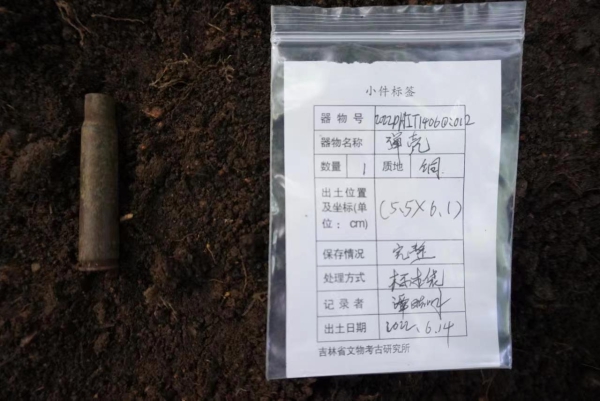 小件标签
器物号
器物名称 弹壳
数量 1 质地 铜
出土位置
及坐标(单 (5.5×6.1)
位：cm)
保存情况 完整
处理方式
记录者
出土日期 2022.6.14
吉林省文物考古研究所